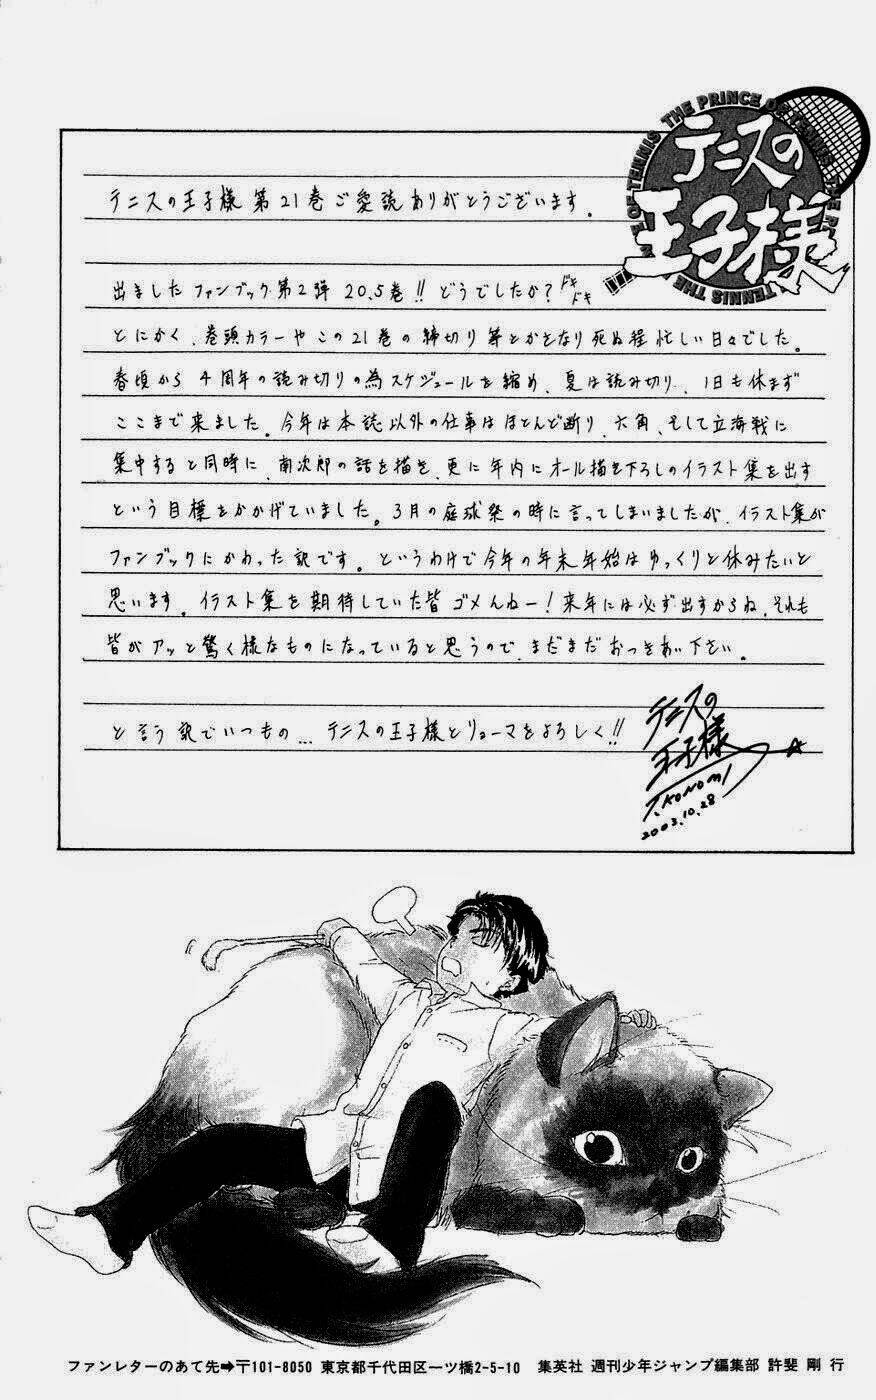 THE PRINCE OF TENNIS
テニスの
王子様
テニスの王子様 第21巻ご愛読ありがとうございます。
出ました ファンブック第2弾 20.5巻!! どうでしたか? ドキドキ
とにかく、巻頭カラーやこの21巻の締切り等とかさなり死ぬ程忙しい日々でした。
春頃から4周年の読み切りの為スケジュールを縮め、夏は読み切り、1日も休まず
ここまで来ました。今年は本誌以外の仕事はほとんど断り、六角、そして立海戦に
集中すると同時に、南次郎の話を描き、更に年内にオール描き下ろしのイラスト集を出す
という目標をかかげていました。3月の庭球祭の時に言ってしまいましたが、イラスト集が
ファンブックにかわった訳です。というわけで今年の年末年始はゆっくりと休みたいと
思います。イラスト集を期待していた皆ゴメんねー!来年には必ず出すからね、それも
皆がアッと驚く様なものになっていると思うので、まだまだおつきあい下さい。
と言う訳でいつもの…テニスの王子様とリョーマをよろしく!!
テニスの
王子様
T.KONOMI
2003.10.28
ファンレターのあて先➡〒101-8050 東京都千代田区一ツ橋2-5-10 集英社 週刊少年ジャンプ編集部 許斐 剛 行